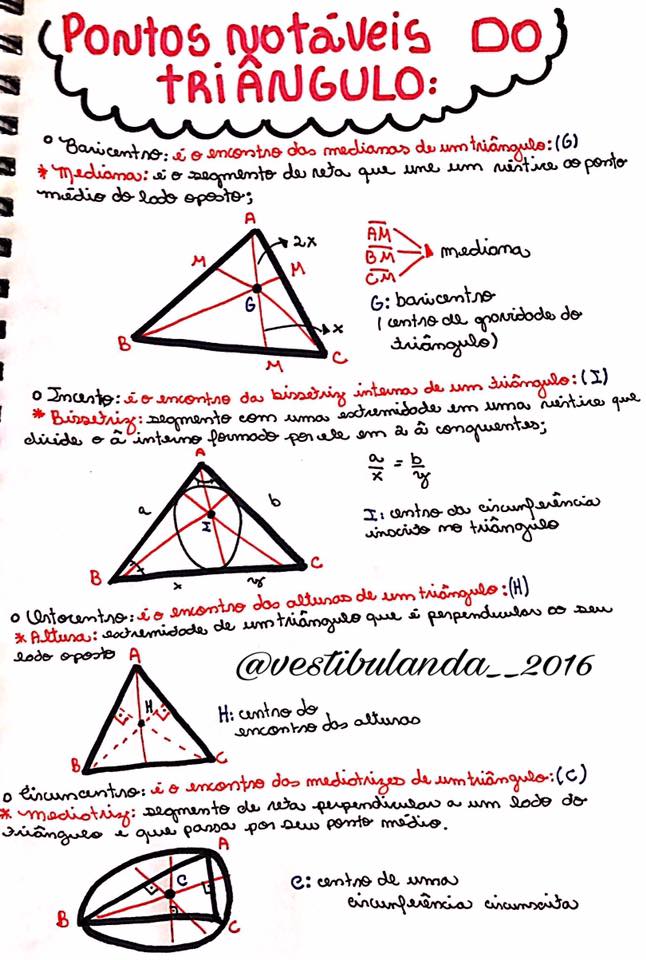 PONTOS NOTÁVEIS DO
TRIÂNGULO:
° Baricentro: é o encontro das medianas de um triângulo: (G)
* Mediana: é o segmento de reta que une um vértice ao ponto
médio do lado oposto;
A
2x
M
M
G
x
B
M
C
AM
BM
CM
mediana
G: baricentro
(centro de gravidade do
triângulo)
o Incento: é o encontro da bissetriz interna de um triângulo: (I)
* Bissetriz: segmento com uma extremidade em uma vértice que
divide o â interno formado por ele em 2 â congruentes;
A
a
b
I
B
C
x
y
a/x = b/y
I: centro da circunferência
inscrito no triângulo
o Ortocentro: é o encontro das alturas de um triângulo: (H)
* Altura: extremidade de um triângulo que é perpendicular ao seu
lado oposto
@vestibulanda__2016
A
H
B
C
H: centro do
encontro das alturas
o Circuncentro: é o encontro das mediatrizes de um triângulo: (C)
* Mediatriz: segmento de reta perpendicular a um lado do
triângulo e que passa por seu ponto médio.
A
C
B
C
C: centro de uma
circunferência circunscrita